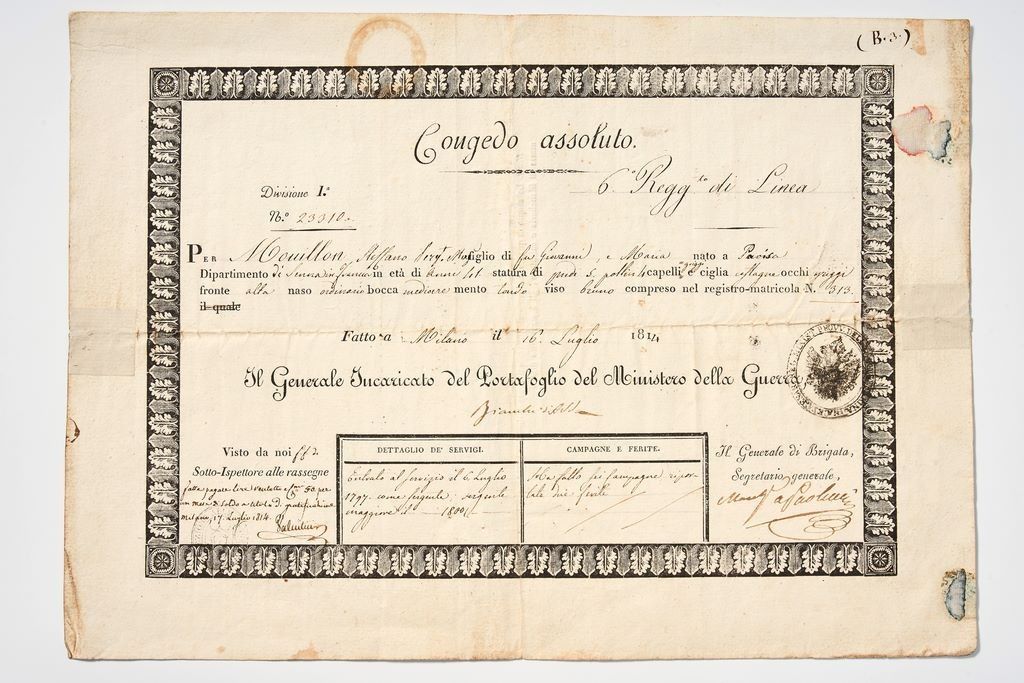 (B. 3.)
Congedo assoluto.
Divisione I.a
N.o 23310.
6.o Regg.to di Linea
PER Mouillon, Steffano Serg.te Mag. figlio di fu Giovanni, e Maria nato a
Dipartimento di Senna in Francia in età di anni statura di piedi 5. pollici 4 capelli ciglia castagne occhi griggi
fronte alta naso ordinario bocca mediocre mento tondo viso bruno compreso nel registro-matricola N. 313.
il quale
Fatto a Milano il 16. Luglio 1814
Il Generale Incaricato del Portafoglio del Ministero della Guerra
Visto da noi
Sotto-Ispettore alle rassegne
fatte pagare Lire 50. per
un mese di soldo a titolo di gratificazione
Milano, 17. Luglio 1814.
DETTAGLIO DE' SERVIGI.
Entrato al servigio il 6. Luglio
1797. come sergente, sergente
maggiore il 1800
CAMPAGNE E FERITE.
Ha fatto sei Campagne ripor-
tate due ferite
Il Generale di Brigata,
Segretario generale,